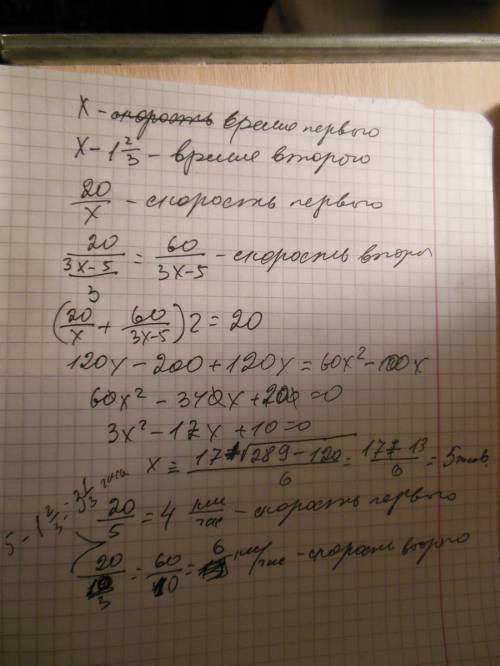 x - скорость время первого
x - 1 2/3 - время второго
20/x - скорость первого
20/((3x-5)/3) = 60/(3x-5) - скорость второг
(20/x + 60/(3x-5)) 2 = 20
120x - 200 + 120x = 60x² - 100x
60x² - 340x + 200 = 0
3x² - 17x + 10 = 0
x = (17+√(289-120))/6 = (17+13)/6 = 5 часов.
5 - 1 2/3 = 3 1/3 часа
20/5 = 4 км/час - скорость первого
20/(10/3) = 60/10 = 6 км/час - скорость второго